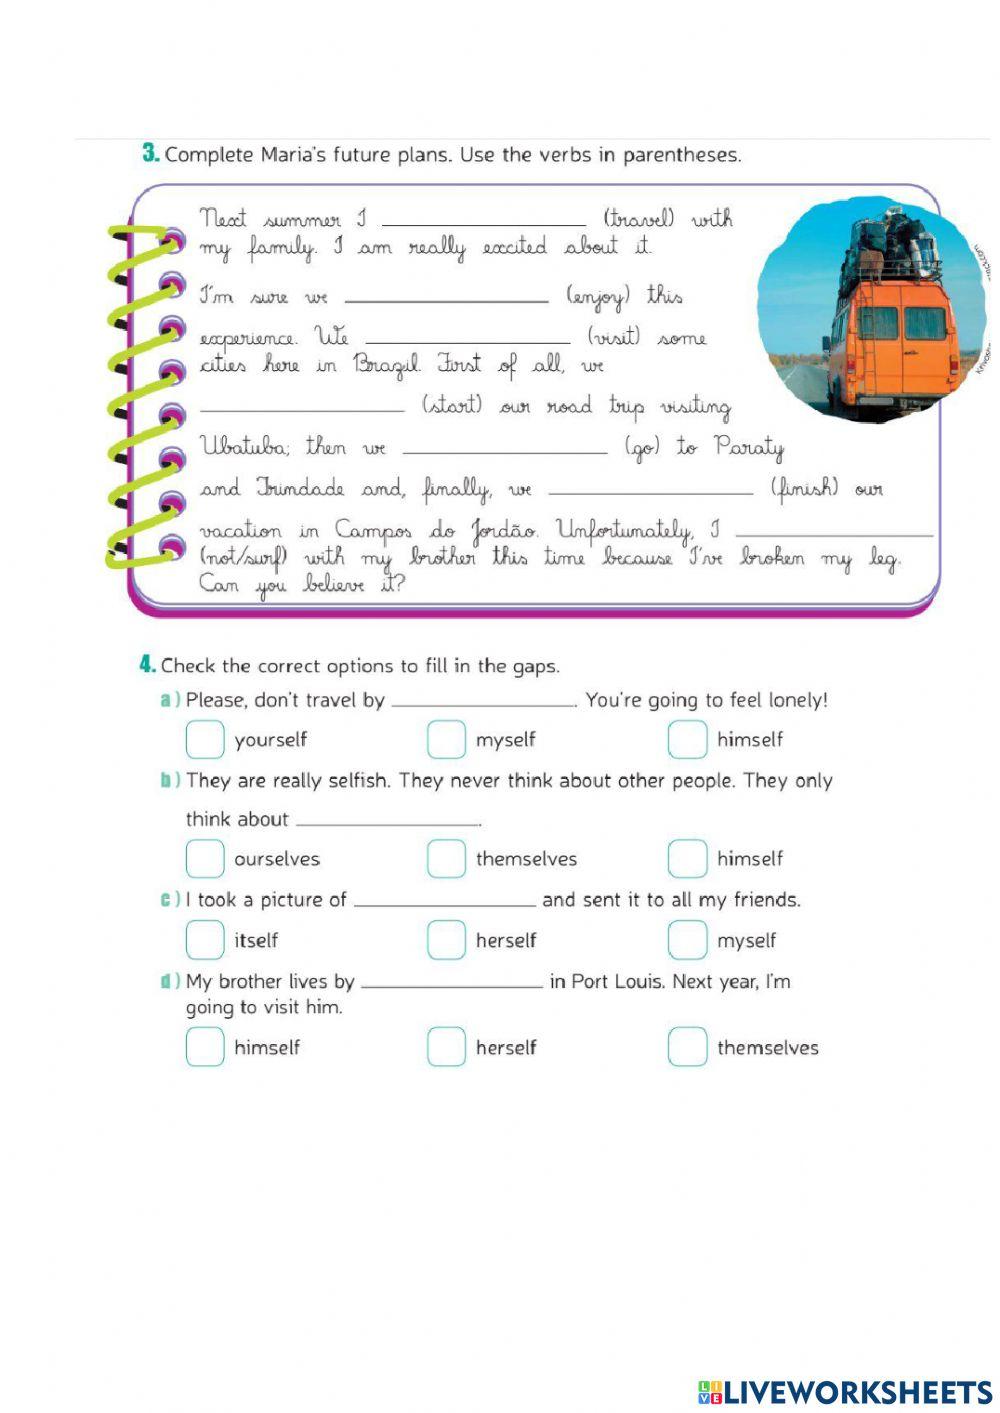 3. Complete Maria's future plans. Use the verbs in parentheses.
Next summer I ____________ (travel) with
my family. I am really excited about it.
I'm sure we ____________ (enjoy) this
experience. We ____________ (visit) some
cities here in Brazil. First of all, we
____________ (start) our road trip visiting
Ubatuba; then we ____________ (go) to Paraty
and Trindade and, finally, we ____________ (finish) our
vacation in Campos do Jordão. Unfortunately, I ____________
(not/surf) with my brother this time because I've broken my leg.
Can you believe it?
4. Check the correct options to fill in the gaps.
a) Please, don't travel by ____________. You're going to feel lonely!
yourself myself himself
b) They are really selfish. They never think about other people. They only
think about ____________.
ourselves themselves himself
c) I took a picture of ____________ and sent it to all my friends.
itself herself myself
d) My brother lives by ____________ in Port Louis. Next year, I'm
going to visit him.
himself herself themselves
LIVE LIVEWORKSHEETS